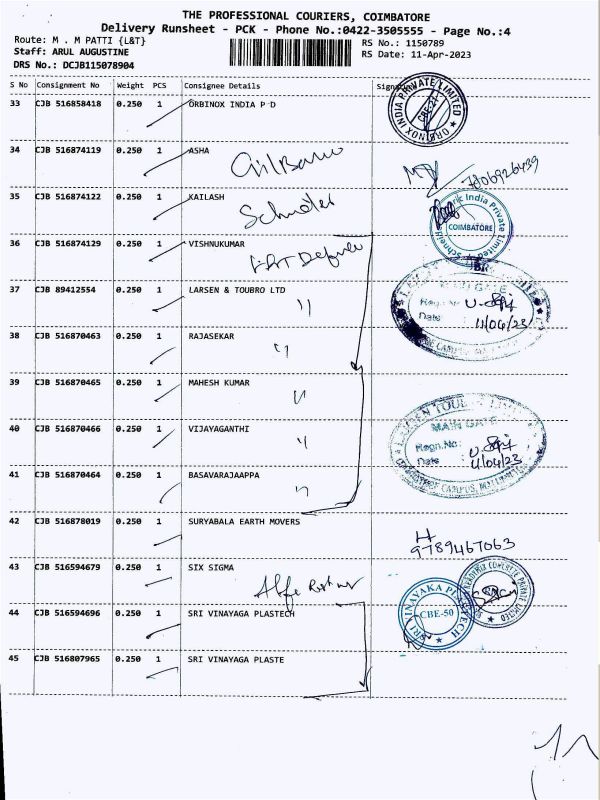 THE PROFESSIONAL COURIERS, COIMBATORE
Delivery Runsheet - PCK - Phone No.:0422-3505555 - Page No.:4
Route: M . M PATTI {L&T}
RS No.: 1150789
Staff: ARUL AUGUSTINE
RS Date: 11-Apr-2023
DRS No.: DCJB115078904
S No Consignment No Weight PCS Consignee Details
33 CJB 516858418 0.250 1 ORBINOX INDIA P D
ORBINOX INDIA PRIVATE LIMITED
34 CJB 516874119 0.250 1 ASHA
7806926439
35 CJB 516874122 0.250 1 KAILASH
COIMBATORE
36 CJB 516874129 0.250 1 VISHNUKUMAR
37 CJB 89412554 0.250 1 LARSEN & TOUBRO LTD
Regn.No
Date : 11/04/23
38 CJB 516870463 0.250 1 RAJASEKAR
39 CJB 516870465 0.250 1 MAHESH KUMAR
40 CJB 516870466 0.250 1 VIJAYAGANTHI
MAIN GATE
Regn.No:
Date : 11/04/23
41 CJB 516870464 0.250 1 BASAVARAJAAPPA
42 CJB 516878019 0.250 1 SURYABALA EARTH MOVERS
9789467063
43 CJB 516594679 0.250 1 SIX SIGMA
44 CJB 516594696 0.250 1 SRI VINAYAGA PLASTECH
SRI VINAYAKA PLASTECH
CBE-50
45 CJB 516807965 0.250 1 SRI VINAYAGA PLASTE